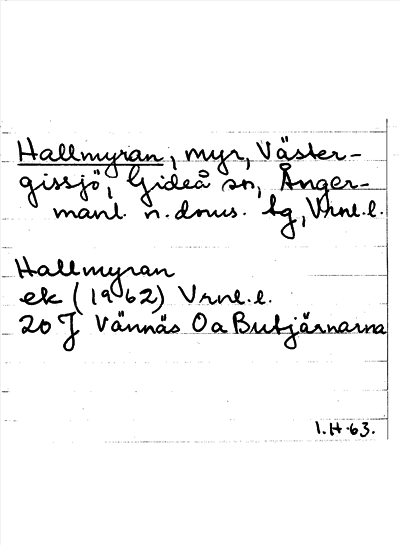 Hallmyran, myr, Väster-
gissjö, Gideå sn, Ånger-
manl. n. doms. lg, Vrnl. l.
Hallmyran
ek (1962) Vrnl. l.
20 J Vännäs O a Butjärnarna
I.H.63.